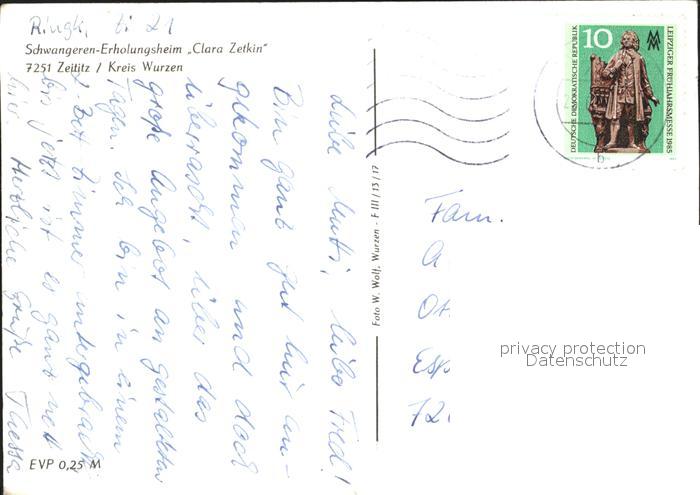 Schwangeren-Erholungsheim „Clara Zetkin"
7251 Zeititz / Kreis Wurzen
Liebe Mutti, liebe Fred!
Bin ganz gut hier an-
gekommen und doch
überrascht, über das
große Angebot an gestalteten
Tagen. Ich bin in einem
2-Bett Zimmer untergebracht
bis jetzt ist es ganz nett
hier. Herzliche Grüße
EVP 0,25 M
Foto W. Wolf, Wurzen - F III/13/17
10
DEUTSCHE DEMOKRATISCHE REPUBLIK
LEIPZIGER FRÜHJAHRSMESSE 1985
b
Fam.
A
Ot.
Esp
72
privacy protection
Datenschutz